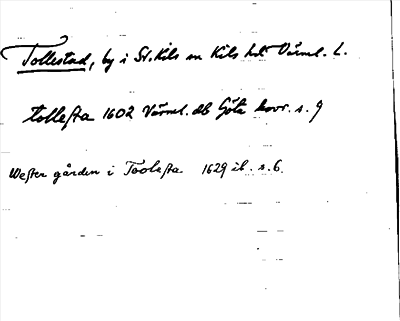 Tollestad, by i St. Kils sn Kils hd Värml. L.
tollesta 1602 Värml. db Göta hovr. s. 9
Wester gården i Toolesta 1629 ib. s. 6.